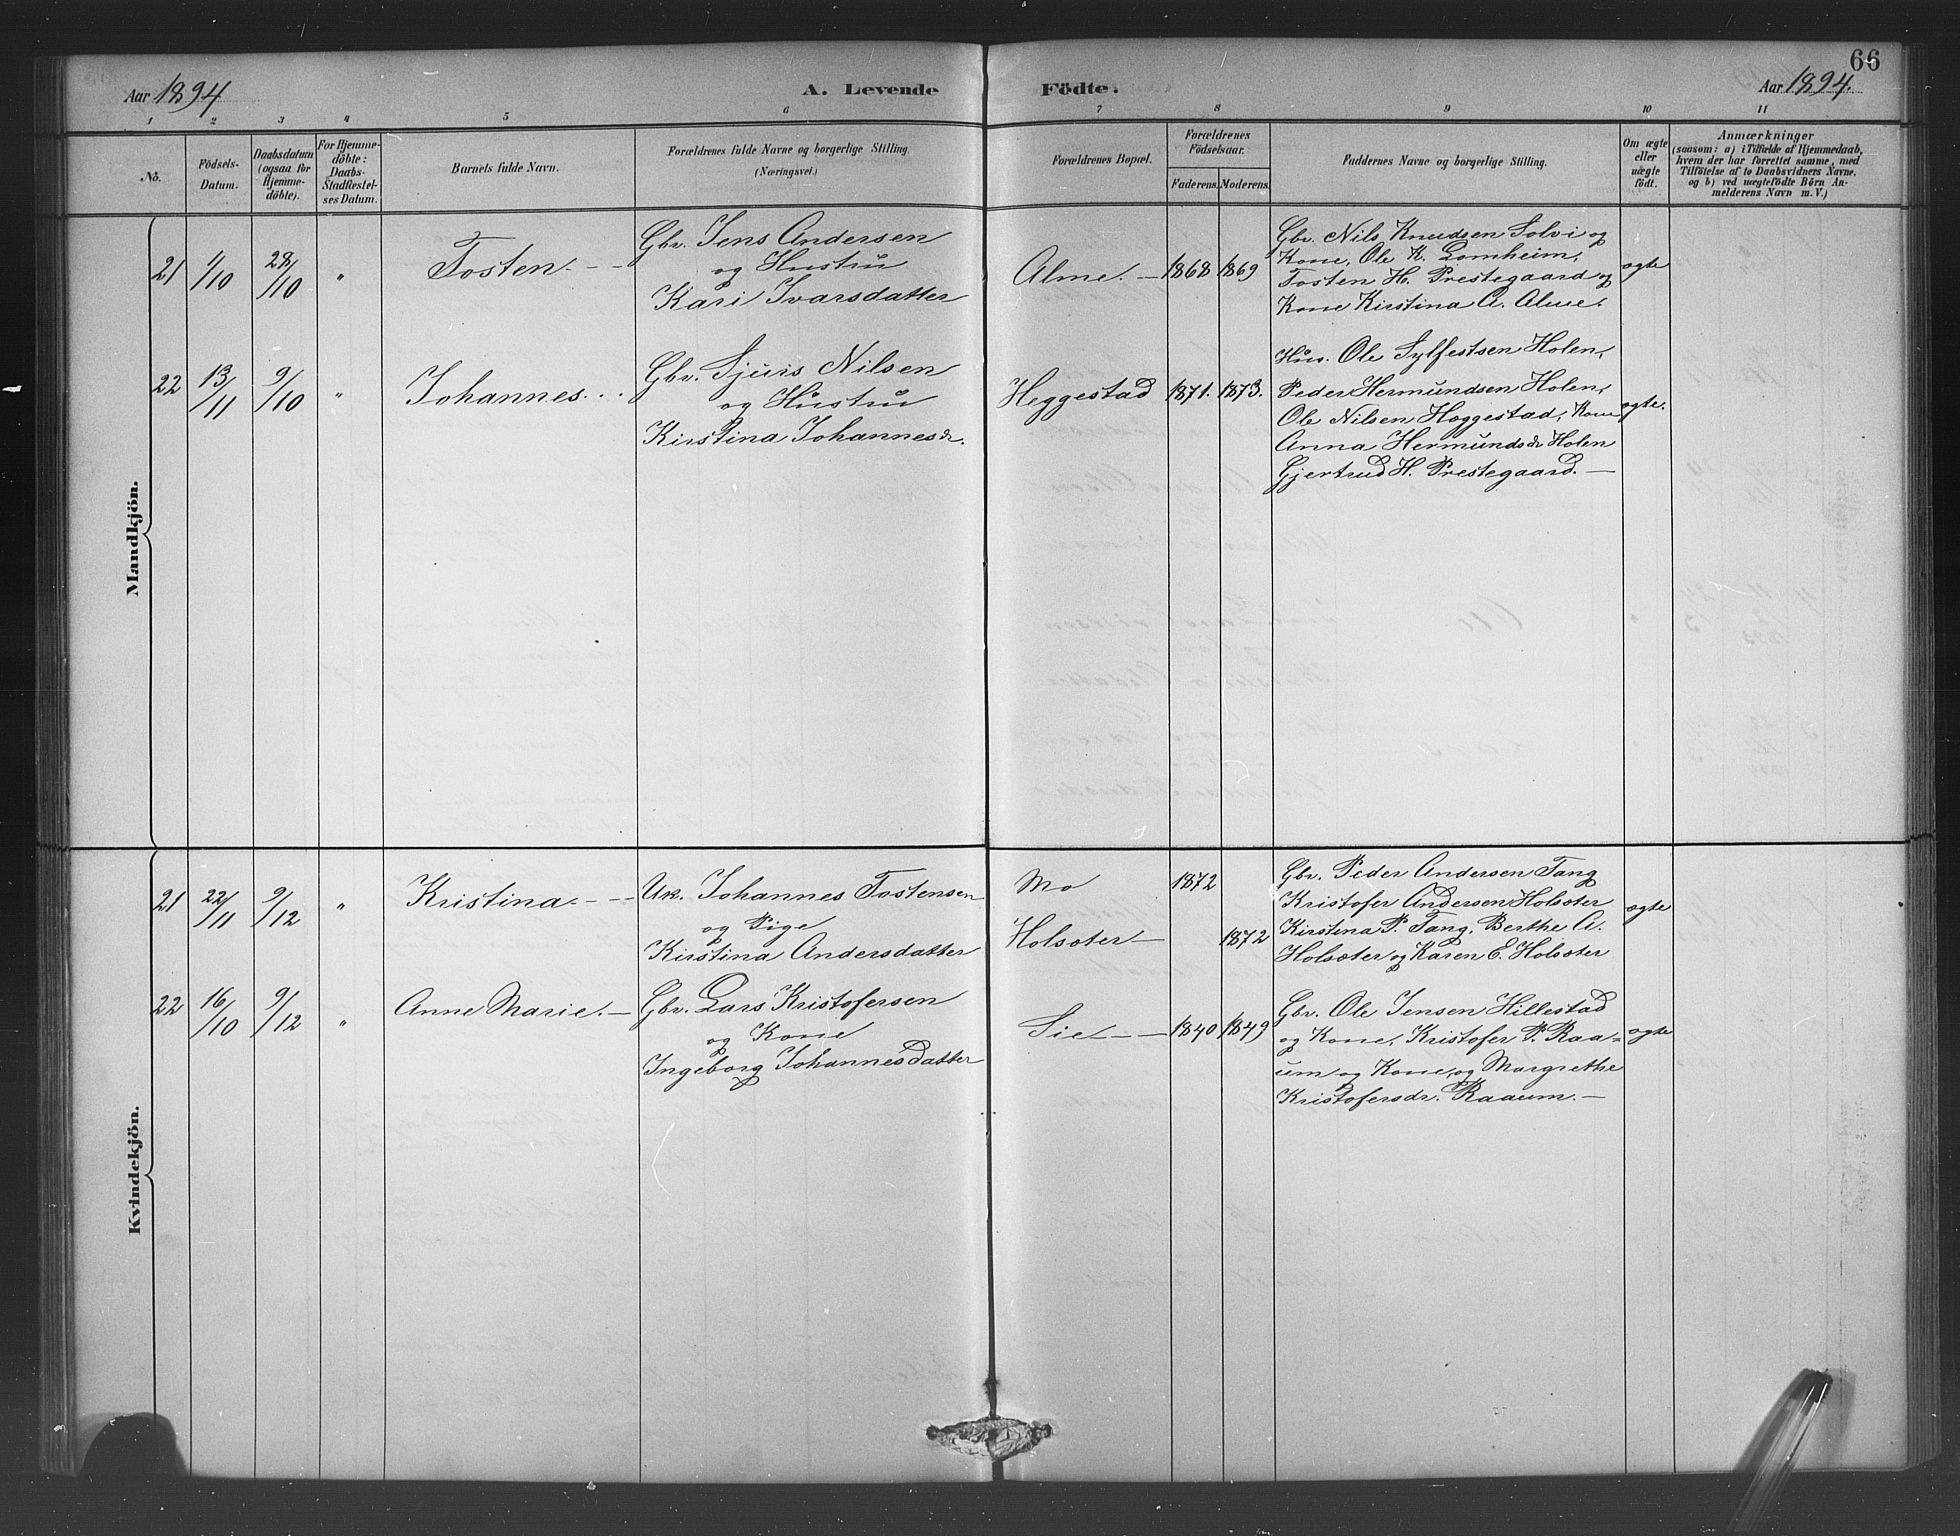 66
Aar 1894
A. Levende
Födte.
Aar 1894.
1 2 3 4 5 6 7 8 9 10 11
No.
Födsels-
Datum.
Daabsdatum
(ogsaa for
Hjemme-
döbte).
For Hjemme-
döbte:
Daabs-
Stadfæstel-
ses Datum.
Barnets fulde Navn.
Forældrenes fulde Navne og borgerlige Stilling.
(Næringsvei.)
Forældrenes Bopæl.
Forældrenes
Födselsaar.
Faderens. Moderens.
Faddernes Navne og borgerlige Stilling.
Om ægte
eller
uægte
født.
Anmærkninger
(saasom: a) i Tilfælde af Hjemmedaab,
hvem der har forrettet samme, med
Tilföielse af to Daabsvidners Navne.
og b) ved uægtefödte Börn An-
melderens Navn m. V.)
Mandkjön.
21 1/10 28/10 " Tosten
Gbr. Jens Andersen
og Hustru
Kari Ivarsdatter
Alme 1868 1869
Gbr. Nils Knudsen Solvi og
Kone, Ole K. Lomheim,
Tosten H. Prestegaard og
Kone Kirstina A. Alme.
ægte
22 13/11 9/10 " Johannes
Gbr. Sjurs Nilsen
og Hustru
Kirstina Johannesdr.
Heggestad 1871. 1873.
Hus. Ole Sylfestsen Holen,
Peder Hermundsen Holen,
Ole Nilsen Heggestad, Kone
Anna Hermundsdr Holen
Gjertrud H. Prestegaard.
ægte.
Kvindekjön.
21 22/11 9/12 " Kristina
Uk. Johannes Tostensen
og Pige
Kirstina Andersdatter
Mo 1872
Holsæter 1872
Gbr. Peder Andersen Tang
Kristofer Andersen Holsæter
Kirstina P. Tang, Berthe A.
Holsæter og Karen E. Holsæter
ægte
22 16/10 9/12 " Anne Marie.
Gbr. Lars Kristofersen
og Kone
Ingeborg Johannesdatter
Sie 1840 1849
Gbr. Ole Jensen Hillestad
og Kone, Kristofer P. Raa-
um og Kone, og Margrethe
Kristofersdr. Raaum.
ægte